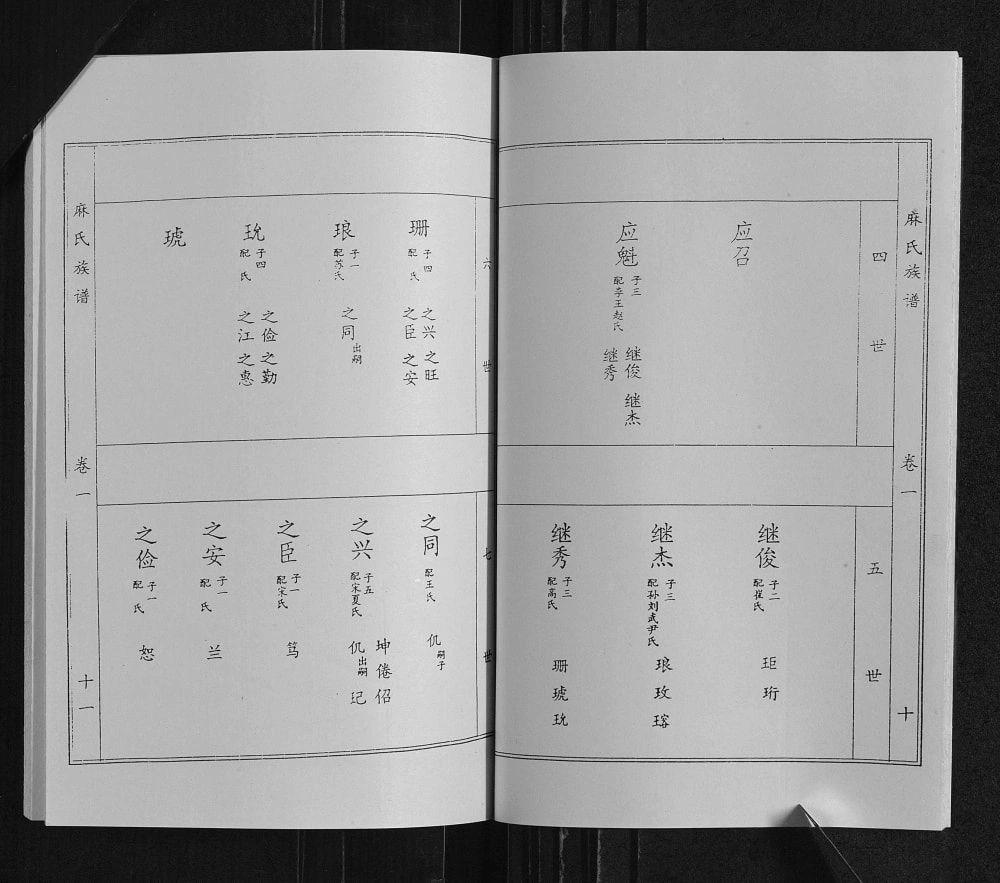 麻氏族谱
卷一
十
四世
应召
应魁
子三
配李王赵氏
继俊 继杰
继秀
五世
继俊
子二
配崔氏
珏 珩
继杰
子三
配孙刘武尹氏
琅 玫 瑢
继秀
子三
配高氏
珊 琥 玧
六世
珊
子四
配 氏
之兴 之旺
之臣 之安
琅
子一
配苏氏
之同 出嗣
玧
子四
配 氏
之俭 之勤
之江 之惠
琥
七世
之同
配王氏
仉 嗣子
之兴
子五
配宋夏氏
坤 倦 佋
仉 出嗣 玘
之臣
子一
配宋氏
笃
之安
子一
配 氏
兰
之俭
子一
配 氏
恕
麻氏族谱
卷一
十一